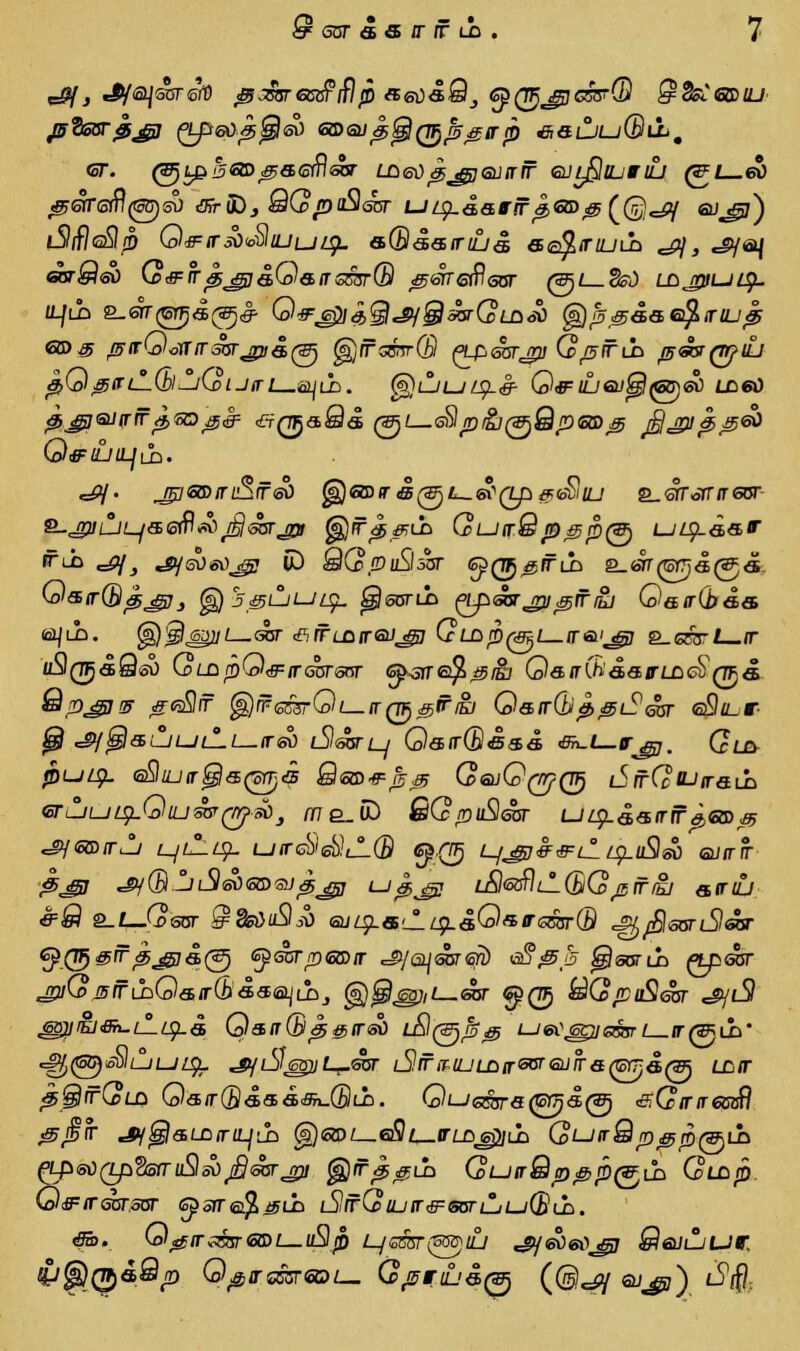 இன்சகாரம். 7
அ, அவுன்ஸ் தண்ணீரிற் கலக்கி, ஒருதுண்டு சீலையை
நனைத்து மூலத்தில் வைத்திருந்தாற் சுகப்படும்.
எ. குழந்தைகளின் மலத்துவார் வழியாய் குடல்
தளளினால் கூடு, கிறேயின் படிக்காரத்தை (இஅ வது)
பிரிவிற் சொல்லியபடி கடுக்காய்க் கஷாயம் அ, அவு
ன்சில் சேர்த்துக்கொண்டு தளளின குடலை மறுபடி
யும் உள்ளுக்குச் செலுத்திஅதின்மேல் இந்தக் கஷாயத்
தை நாளொன்றுக்கு இரண்டு மூன்று நேரம் நன்றாய்
த்தொட்டுப்போடவும். இப்படிச் செய்வதினால் மல
த்துவாரத்தைச் சுருக்கிக் குடலிறங்குகிறதை நிறுத்தல்
செய்யும்.
அ. நுரையீரல் இரைகுடல்முதலிய உள்ளான
உறுப்புகளில் நின்று இரத்தம் போகிறதற்கு படிகா
ரம் அ, அல்லது ௰ கிறேயின் ஒருதரம் உள்ளுக்குக்
கொடுத்து, இந்தப்படி தினம் மூன்றுதரங் கொடுக்க
வும். இதிலுடன் சுமாரவது மேற்குடாவது உண்டா
யிருக்கில் மேற்சொன்ன ஒளஷதங் கொடுக்காமலிருக்
கிறதுந தவிர இரண்டொருதரங் கொடுத்தபின் வியா
தி அதிகப்பட்டால் பின்பு கொடுக்கக் கூடாது. மே
ற்படி வியாதிகளுக் கிசைந்த வேறொரு பிரயோகம்
எப்படியென்றால், ஈஉ௰ கிறேயின் படிக்காரத்தை
அரைப் புட்டி பாலிலிட்டு ஒரு புதுச்சட்டியில் வார்
த்து அடுப்பிலவைத்து பத்து மினிட்டுநேரங் காய்
ச்சி உடனே சீலையில் வடிகட்டிக்கொண்டு ஆறினபின்
ஒருதரத்துக்கு ஒன்றரை அவுன்ஸ் வீதந் தினம் மூன்
றுநேரம்கொடுக்கவும், இதிலுடன் ஒரு கிறேயின் அபி
னுங்கூட்டிக் கொடுத்தால் மிகுந்த பலனுண்டாகும்
ஆனாலிப்படி அபினுடன் பிராயமானவாகளுக்கு மா
த்திரமே கொடுக்கக்கூடும். பெண்களுக்கு சுரோணி
தநீர் அதிகமாயும் இடைவிடாமலும் போகிறதற்கும்
மூலமுளையில்நின்று இரத்தம் போகிறதற்கும் மேற்
சொன்ன ஒளஷதம் பிரயோசனப்படும்.
௯. தொண்டையிற் புண்ணாய் அல்லது சிவப்பா
யிருக்கிற தொண்டை நோய்க்கு (இஅ வது) பிரி